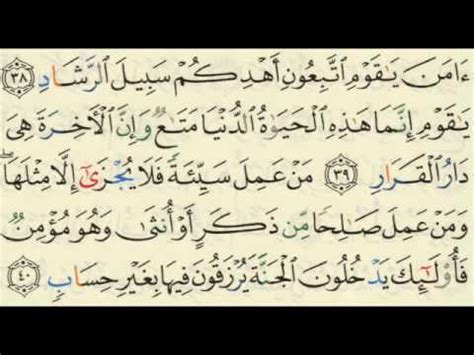 ءَامَنَ يَٰقَوْمِ ٱتَّبِعُونِ أَهْدِكُمْ سَبِيلَ ٱلرَّشَادِ ٣٨
يَٰقَوْمِ إِنَّمَا هَٰذِهِ ٱلْحَيَوٰةُ ٱلدُّنْيَا مَتَٰعٌ وَإِنَّ ٱلْأَخِرَةَ هِىَ
دَارُ ٱلْقَرَارِ ٣٩ مَنْ عَمِلَ سَيِّئَةً فَلَا يُجْزَىٰٓ إِلَّا مِثْلَهَا ۖ
وَمَنْ عَمِلَ صَٰلِحًا مِّن ذَكَرٍ أَوْ أُنثَىٰ وَهُوَ مُؤْمِنٌ
فَأُو۟لَٰٓئِكَ يَدْخُلُونَ ٱلْجَنَّةَ يُرْزَقُونَ فِيهَا بِغَيْرِ حِسَابٍ ٤٠